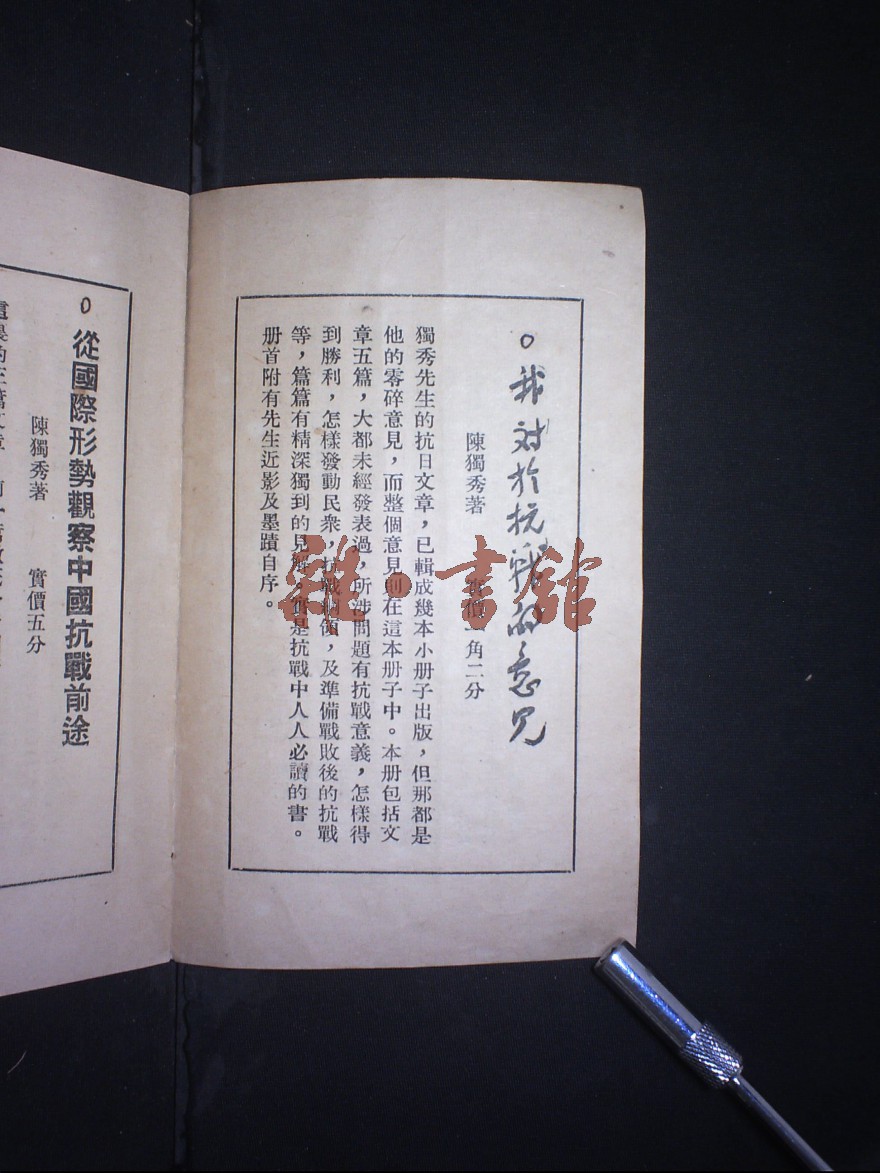 ○我对於抗戰的意見
陳獨秀著 實價一角二分
獨秀先生的抗日文章，已輯成幾本小册子出版，但那都是
他的零碎意見，而整個意見則在這本册子中。本册包括文
章五篇，大都未經發表過，所涉問題有抗戰意義，怎樣得
到勝利，怎樣發動民衆，抗戰綱領，及準備戰敗後的抗戰
等，篇篇有精深獨到的見解。實是抗戰中人人必讀的書。
册首附有先生近影及墨蹟自序。
○從國際形勢觀察中國抗戰前途
陳獨秀著 實價五分
雜·書館